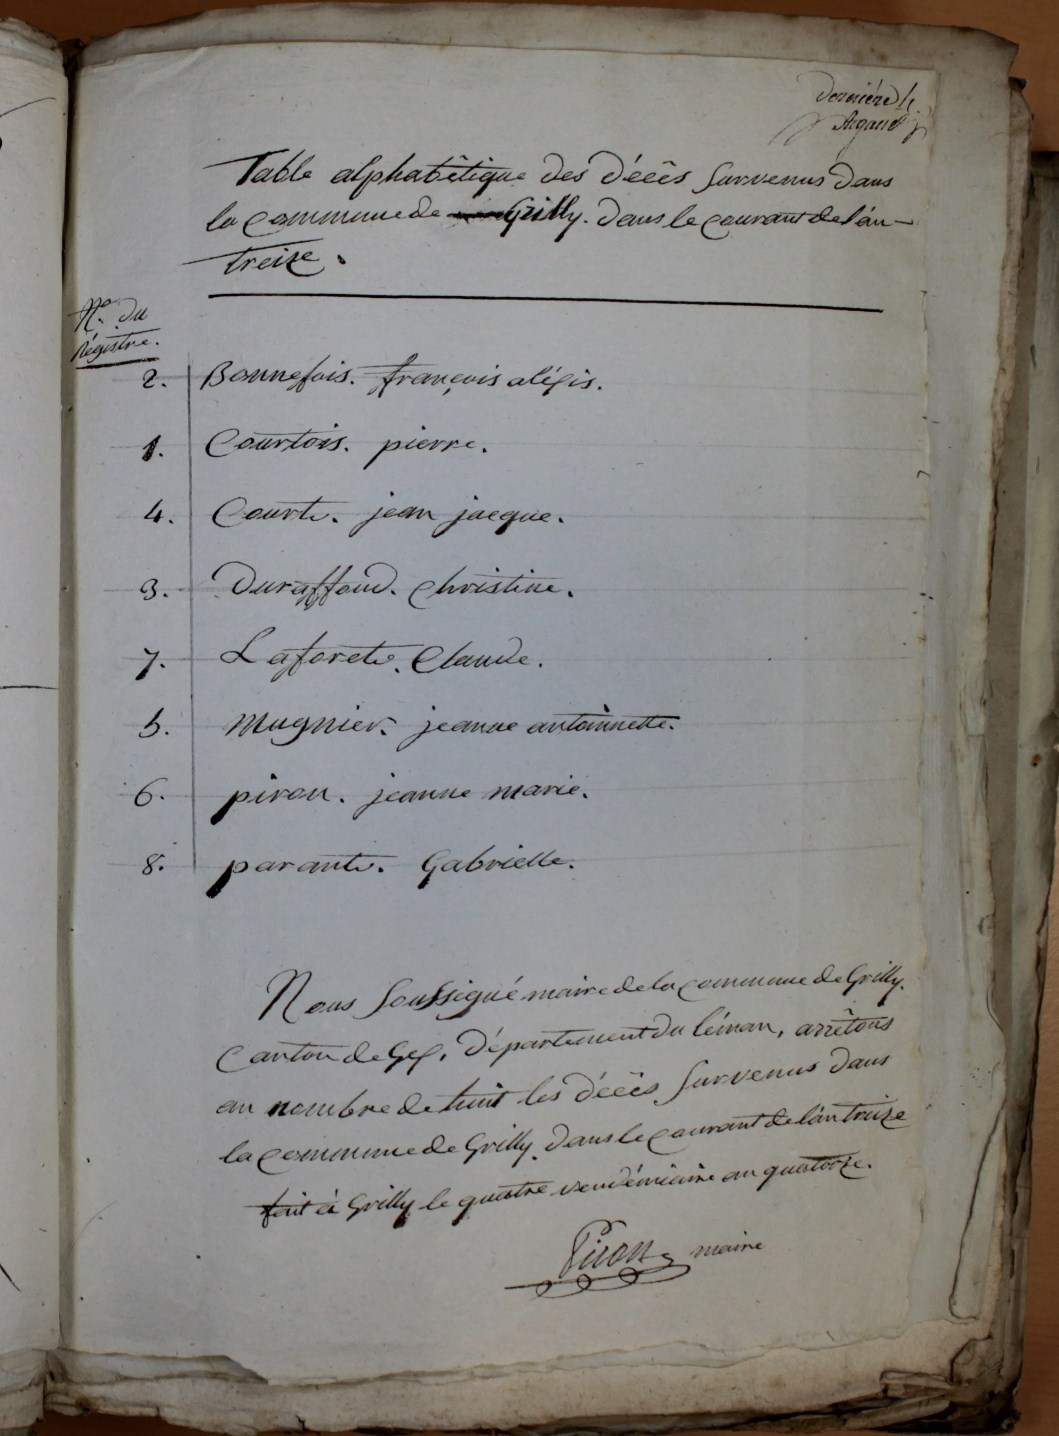 Dernière f.
Table alphabêtique des décês survenus dans
la commune de Grilly. dans le courant de l'an
treize.
N.º du
Régistre.
2. Bonnefois. françois alégis.
1. Courtois. pierre.
4. Courte. jean jacque.
3. Duraffoud. Christine.
7. Laforete. Claude.
5. Mugnier. jeanne antoinnette.
6. piron. jeanne marie.
8. parante. Gabrielle.
Nous Soussigné maire de la commune de Grilly.
Canton de Gex. Département du léman, arrêtons
au nombre de huit les décês survenus dans
la commune de Grilly. dans le courant de l'an treize
fait à Grilly le quatre vendémiaire an quatorze.
Piron maire